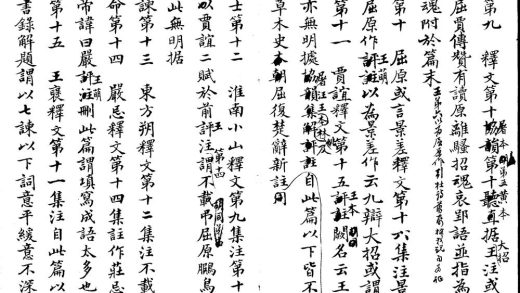 第九　釋文第十協韻第十聽直據王注或
屈賈傳贊有讀原離騷招魂哀郢語並指為
大招
魂附於篇末
第十　屈原或言景差釋文第十六集注景
屈原作評註以為景差作云九辯大招或謂
第十一　賈誼釋文第十五評註闕名云王
亦無明據協韻集解評註自此篇以下皆不
草木史本朝屈復楚辭新註同
士第十二　淮南小山釋文第九集注第十
以賈誼二賦於前評注謂不載弔屈原鵩鳥
此無明据
諫第十三　東方朔釋文第十二集注不載
命第十四　嚴忌釋文第十四集註作莊忌
帝諱曰嚴評注刪此篇謂填寫成語太多也
第十五　王褒釋文第十一集注自此篇以
書錄解題謂以七諫以下詞意平緩意不深